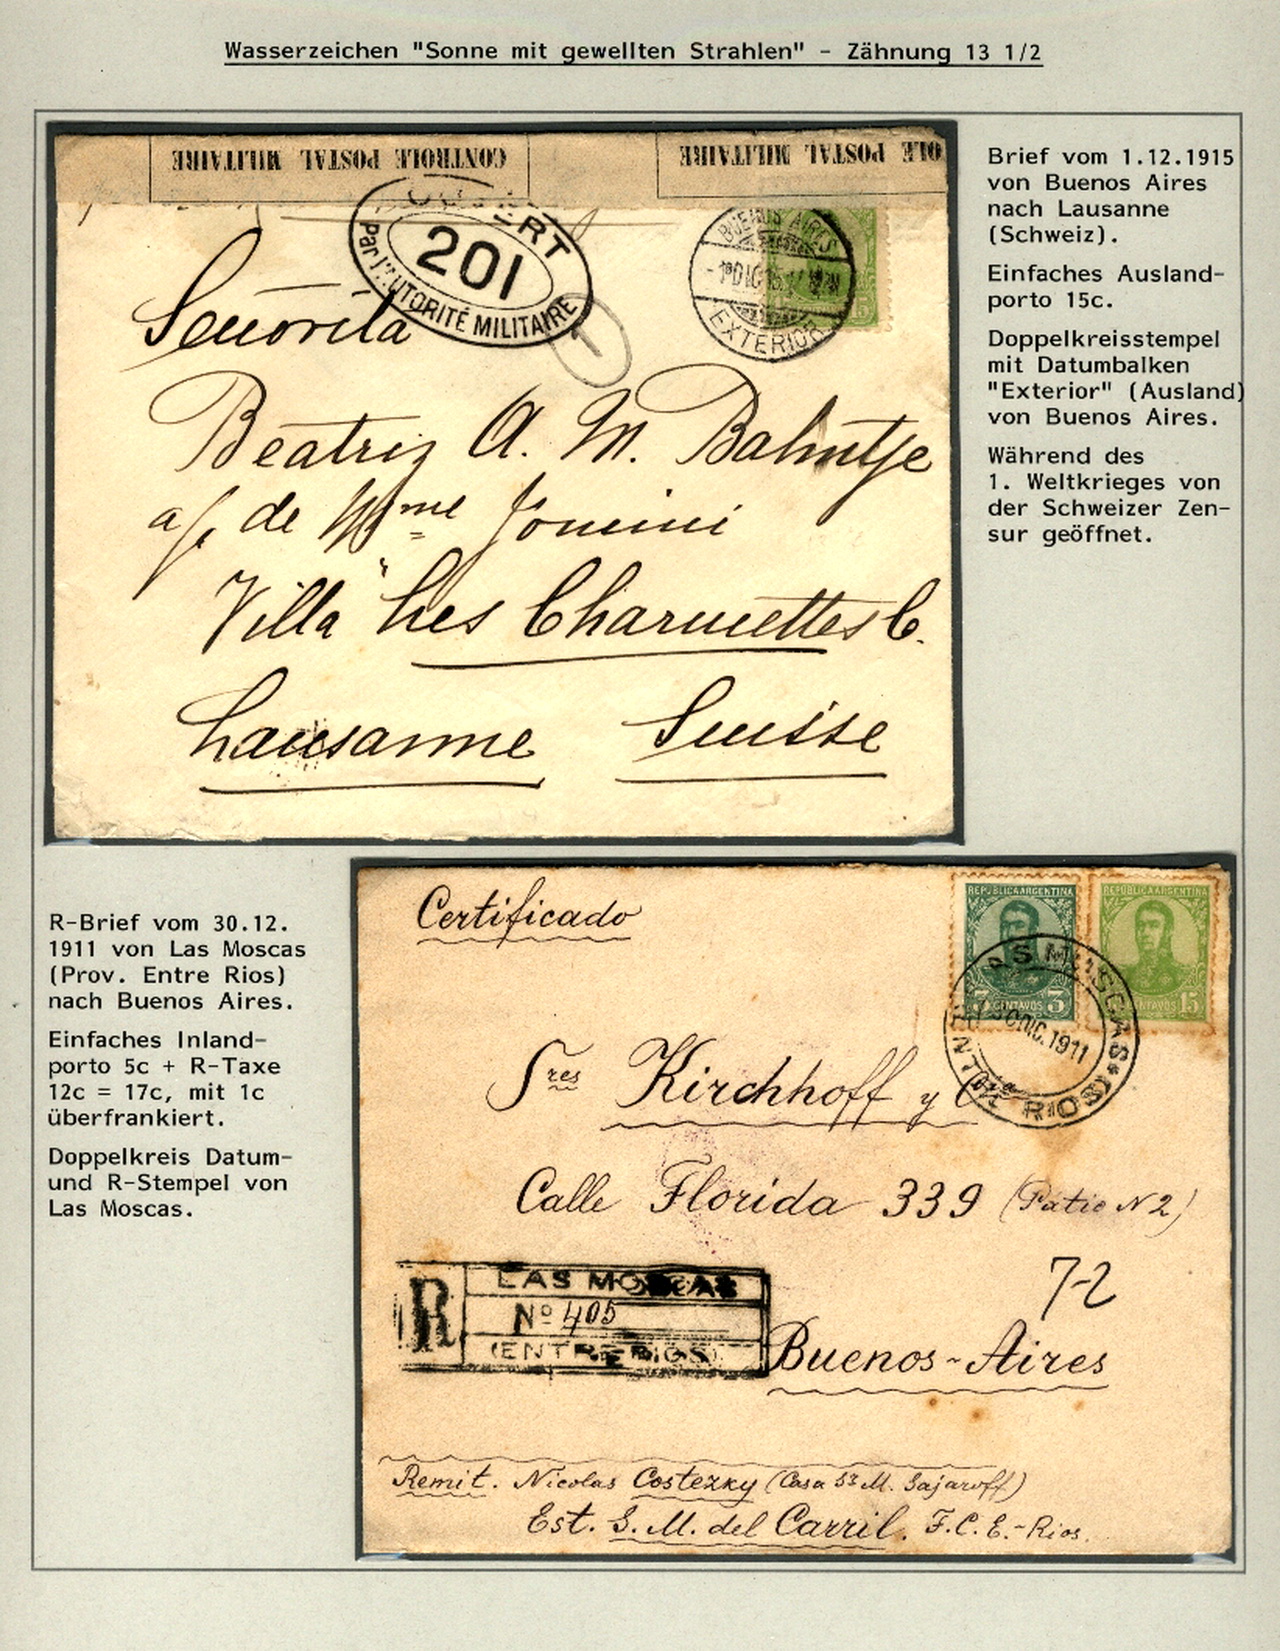 Wasserzeichen "Sonne mit gewellten Strahlen" - Zähnung 13 1/2
CONTROLE POSTAL MILITAIRE
OLE POSTAL MILITAIRE
201
Par l'AUTORITÉ MILITAIRE
T
BUENOS AIRES
EXTERIOR
15
Señorita
Beatriz A. M. Bahntje
a/c de Mme Jomini
Villa "Les Charmettes C.
Lausanne Suisse
Brief vom 1.12.1915
von Buenos Aires
nach Lausanne
(Schweiz).
Einfaches Ausland-
porto 15c.
Doppelkreisstempel
mit Datumbalken
"Exterior" (Ausland)
von Buenos Aires.
Während des
1. Weltkrieges von
der Schweizer Zen-
sur geöffnet.
R-Brief vom 30.12.
1911 von Las Moscas
(Prov. Entre Rios)
nach Buenos Aires.
Einfaches Inland-
porto 5c + R-Taxe
12c = 17c, mit 1c
überfrankiert.
Doppelkreis Datum-
und R-Stempel von
Las Moscas.
Certificado
REPUBLICA ARGENTINA
3 CENTAVOS 3
REPUBLICA ARGENTINA
CENTAVOS 15
LAS MOSCAS
30 DIC. 1911
(ENTRE RIOS)
Sres Kirchhoff y Cia
Calle Florida 339 (Patio N 2)
7-2
R
LAS MOSCAS
No 405
(ENTRE RIOS)
Buenos-Aires
Remit. Nicolas Costezky (Casa Sr M. Sajaroff)
Est. S. M. del Carril. F.C.E.-Rios.